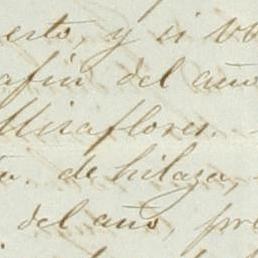 esto, y si
afin del año
Miraflores.
de hilaza,
del año, pre